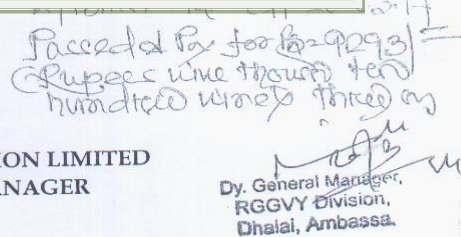 Passed & Pay for Rs=9293/=
(Rupees nine thousand two
hundred ninety three only
ION LIMITED
ANAGER
Dy. General Manager,
RGGVY Division,
Dhalai, Ambassa.